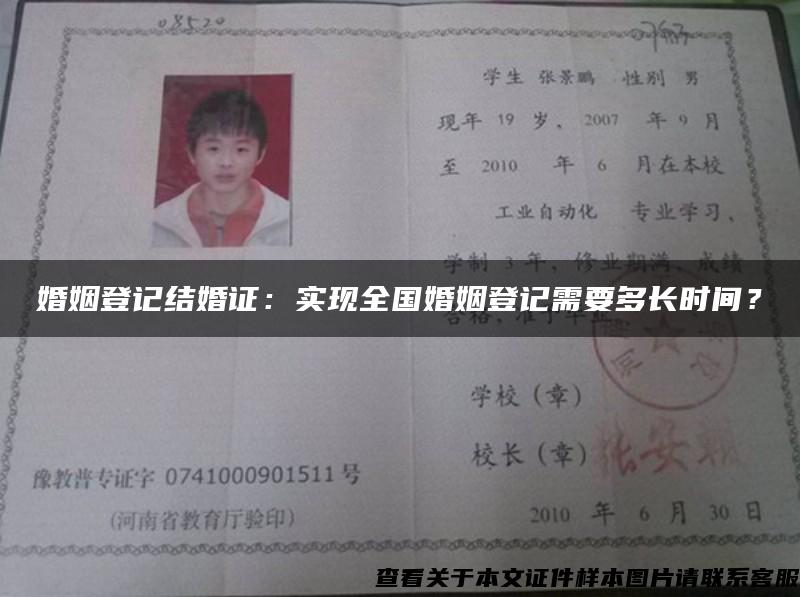 08520
学生 张景鹏 性别 男
现年 19 岁，2007 年 9 月
至 2010 年 6 月在本校
工业自动化 专业学习、
学制 3 年，修业期满，成绩
婚姻登记结婚证：实现全国婚姻登记需要多长时间？
合格，准予毕业
学校（章）
校长（章）
豫教普专证字 0741000901511号
（河南省教育厅验印）
2010 年 6 月 30 日
查看关于本文证件样本图片请联系客服